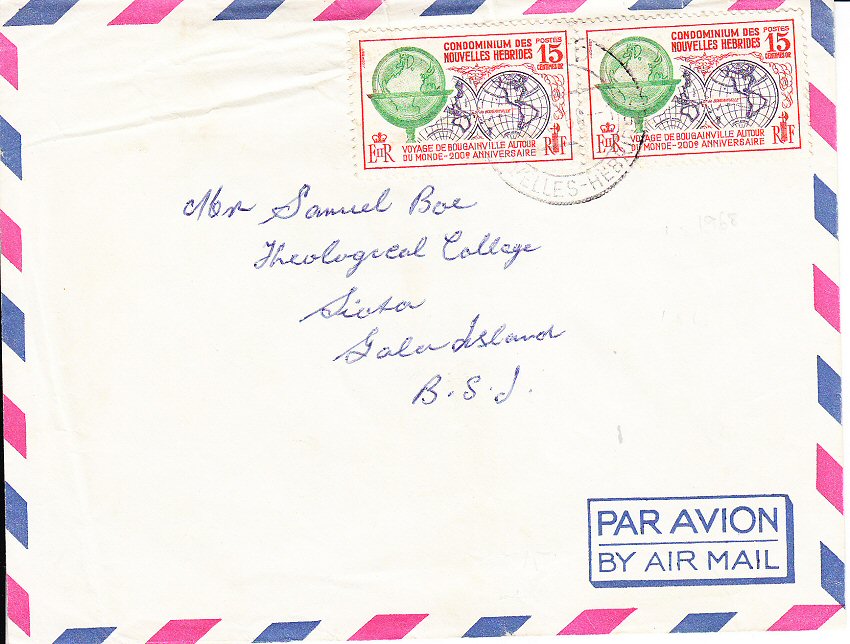 CONDOMINIUM DES
NOUVELLES HEBRIDES
POSTES
15
CENTIMES OR
EIIR
VOYAGE DE BOUGAINVILLE AUTOUR
DU MONDE - 200e ANNIVERSAIRE
RF
CONDOMINIUM DES
NOUVELLES HEBRIDES
POSTES
15
CENTIMES OR
EIIR
VOYAGE DE BOUGAINVILLE AUTOUR
DU MONDE - 200e ANNIVERSAIRE
RF
VELLES-HEB
Mr Samuel Boe
Theological College
Siota
Gala Island
B.S.I.
1968
PAR AVION
BY AIR MAIL